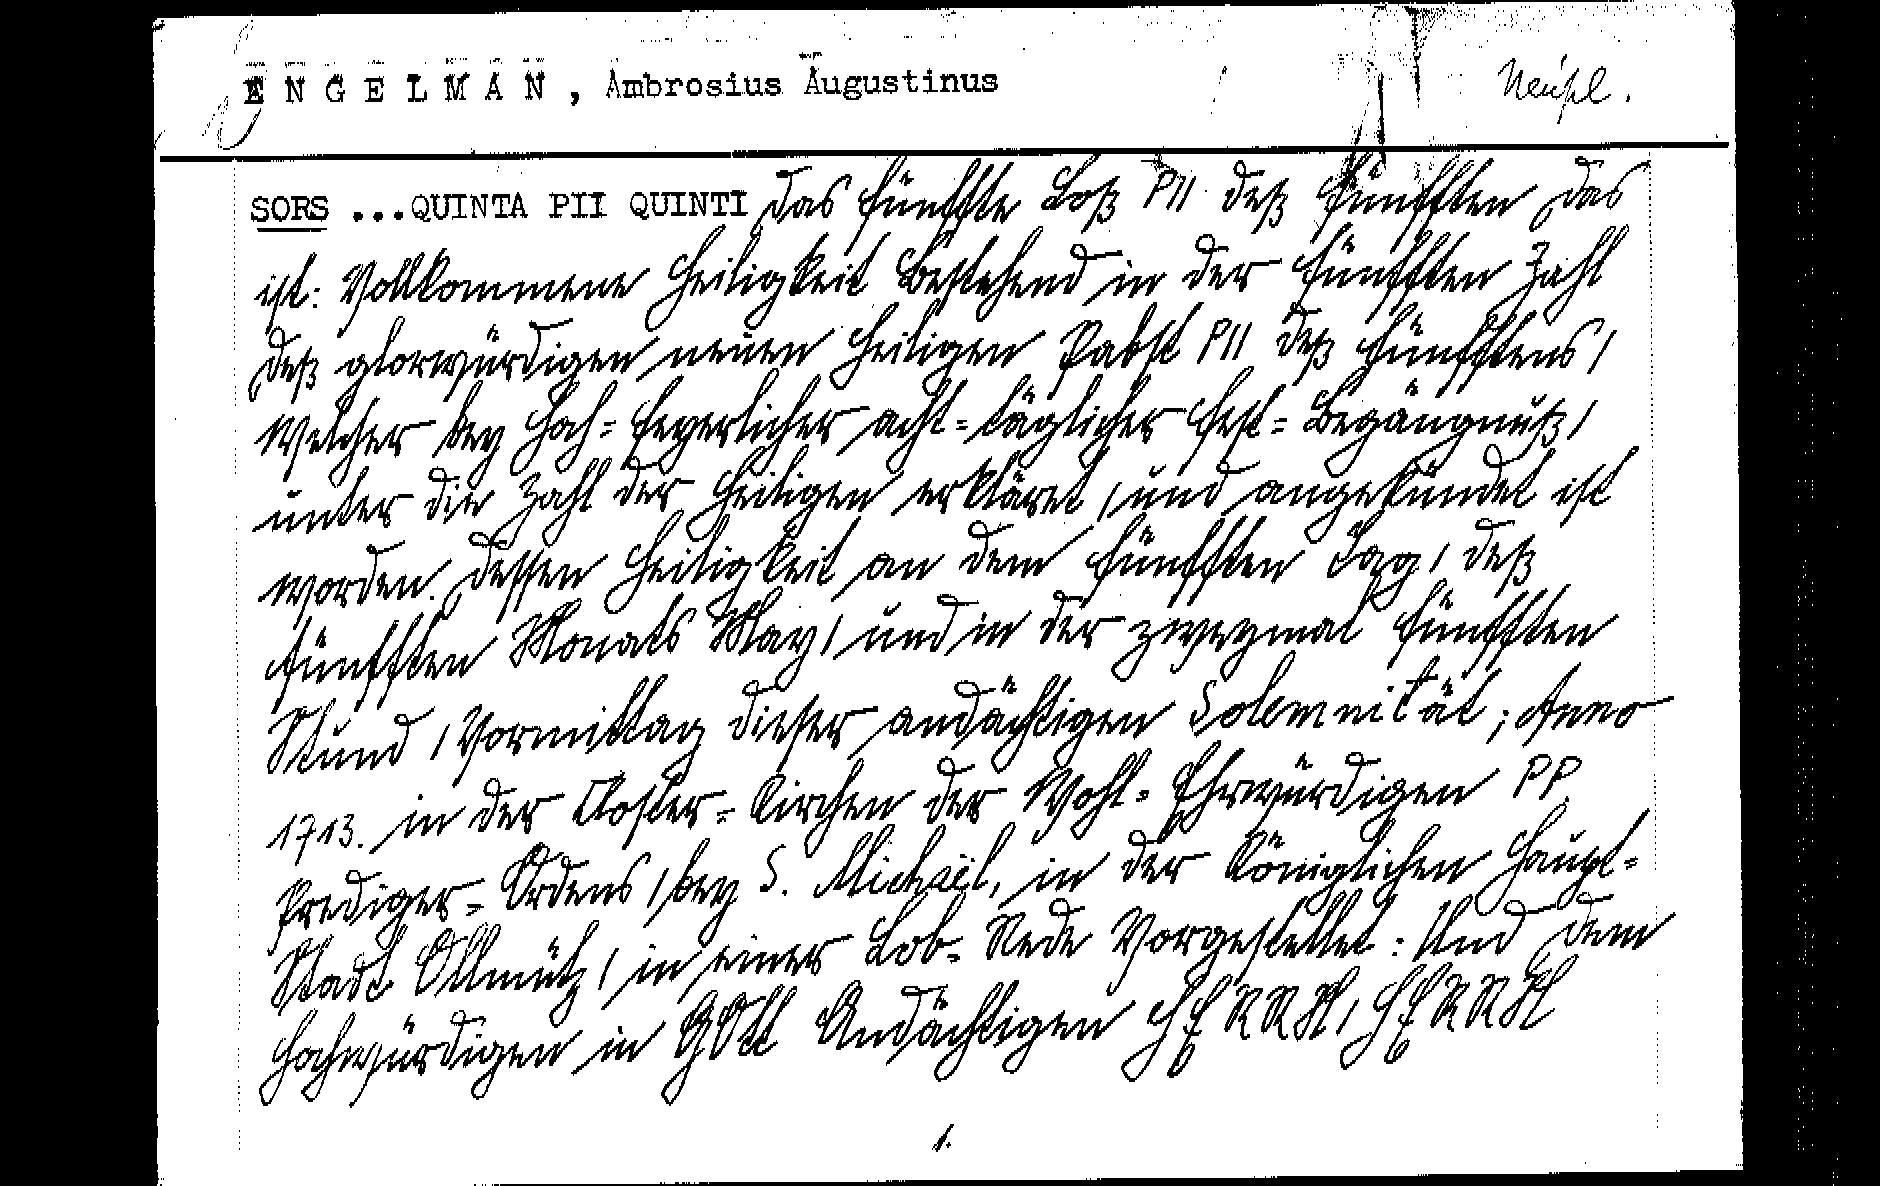 ENGELMAN, Ambrosius Augustinus
SORS ...QUINTA PII QUINTI das fünffte Loß PII deß fünfften das
ist: Vollkommene Heiligkeit bestehend in der fünfften Zahl
deß glorwürdigen neuen Heiligen Pabst PII deß fünfftens/
Welcher bey Hoch=feyerlicher acht=täglicher Fest=Begängnuß/
unter die Zahl der Heiligen erkläret/und angekündet ist
worden. dessen Heiligkeit an dem fünfften Tag/ deß
fünfften Monats May/ und in der zweymal fünfften
Stund/Vormittag dieser andächtigen Solemnität; Anno
1713. in der Closter=Kirchen der Wohl=Ehrwürdigen PP
Prediger=Ordens/bey S. Michaël, in der Königlichen Haupt=
Stadt Ollmütz/ in einer Lob=Rede Vorgestellet: Und dem
Hochwürdigen in GOtt Andächtigen HERRN/HERRN
1.